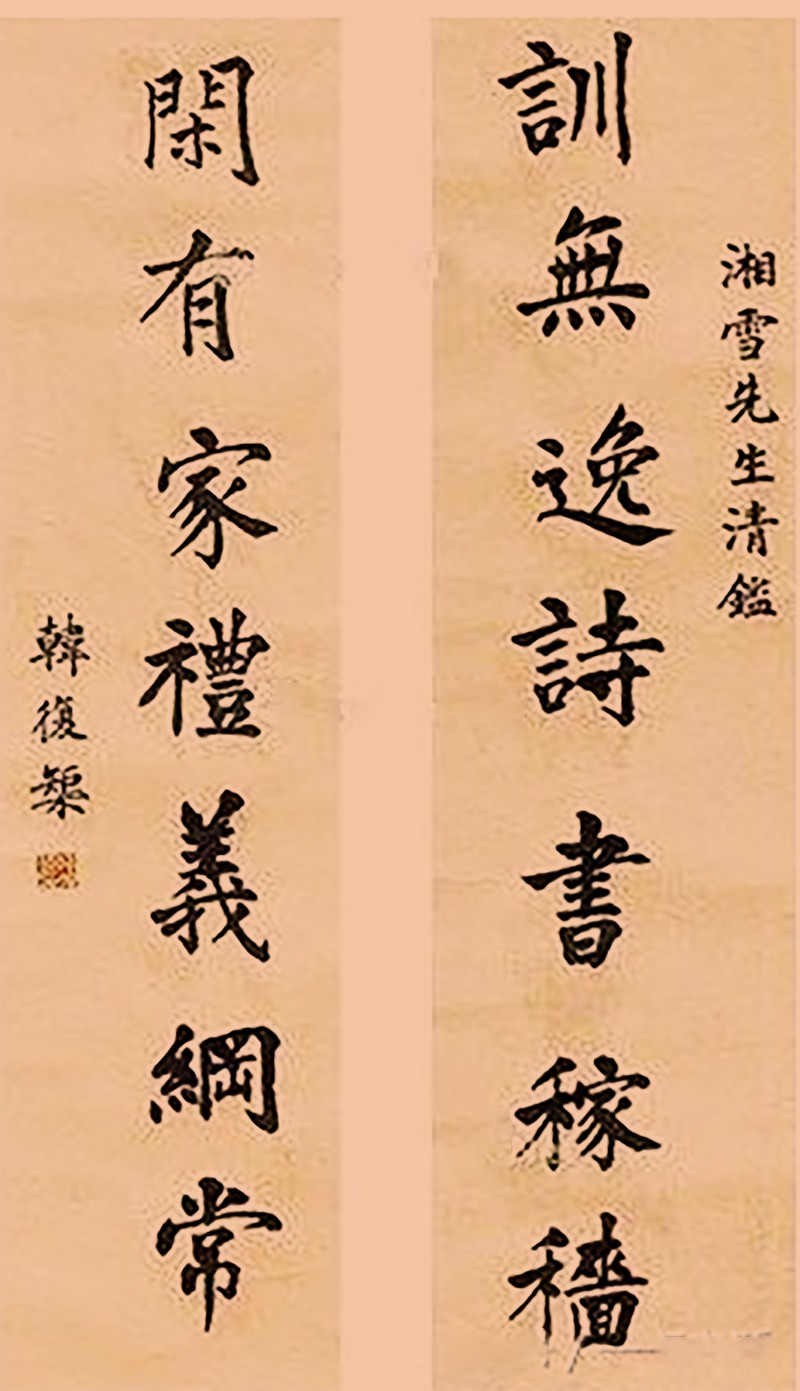 湘雪先生清鑑
訓無逸詩書稼穡
閑有家禮義綱常
韓復榘